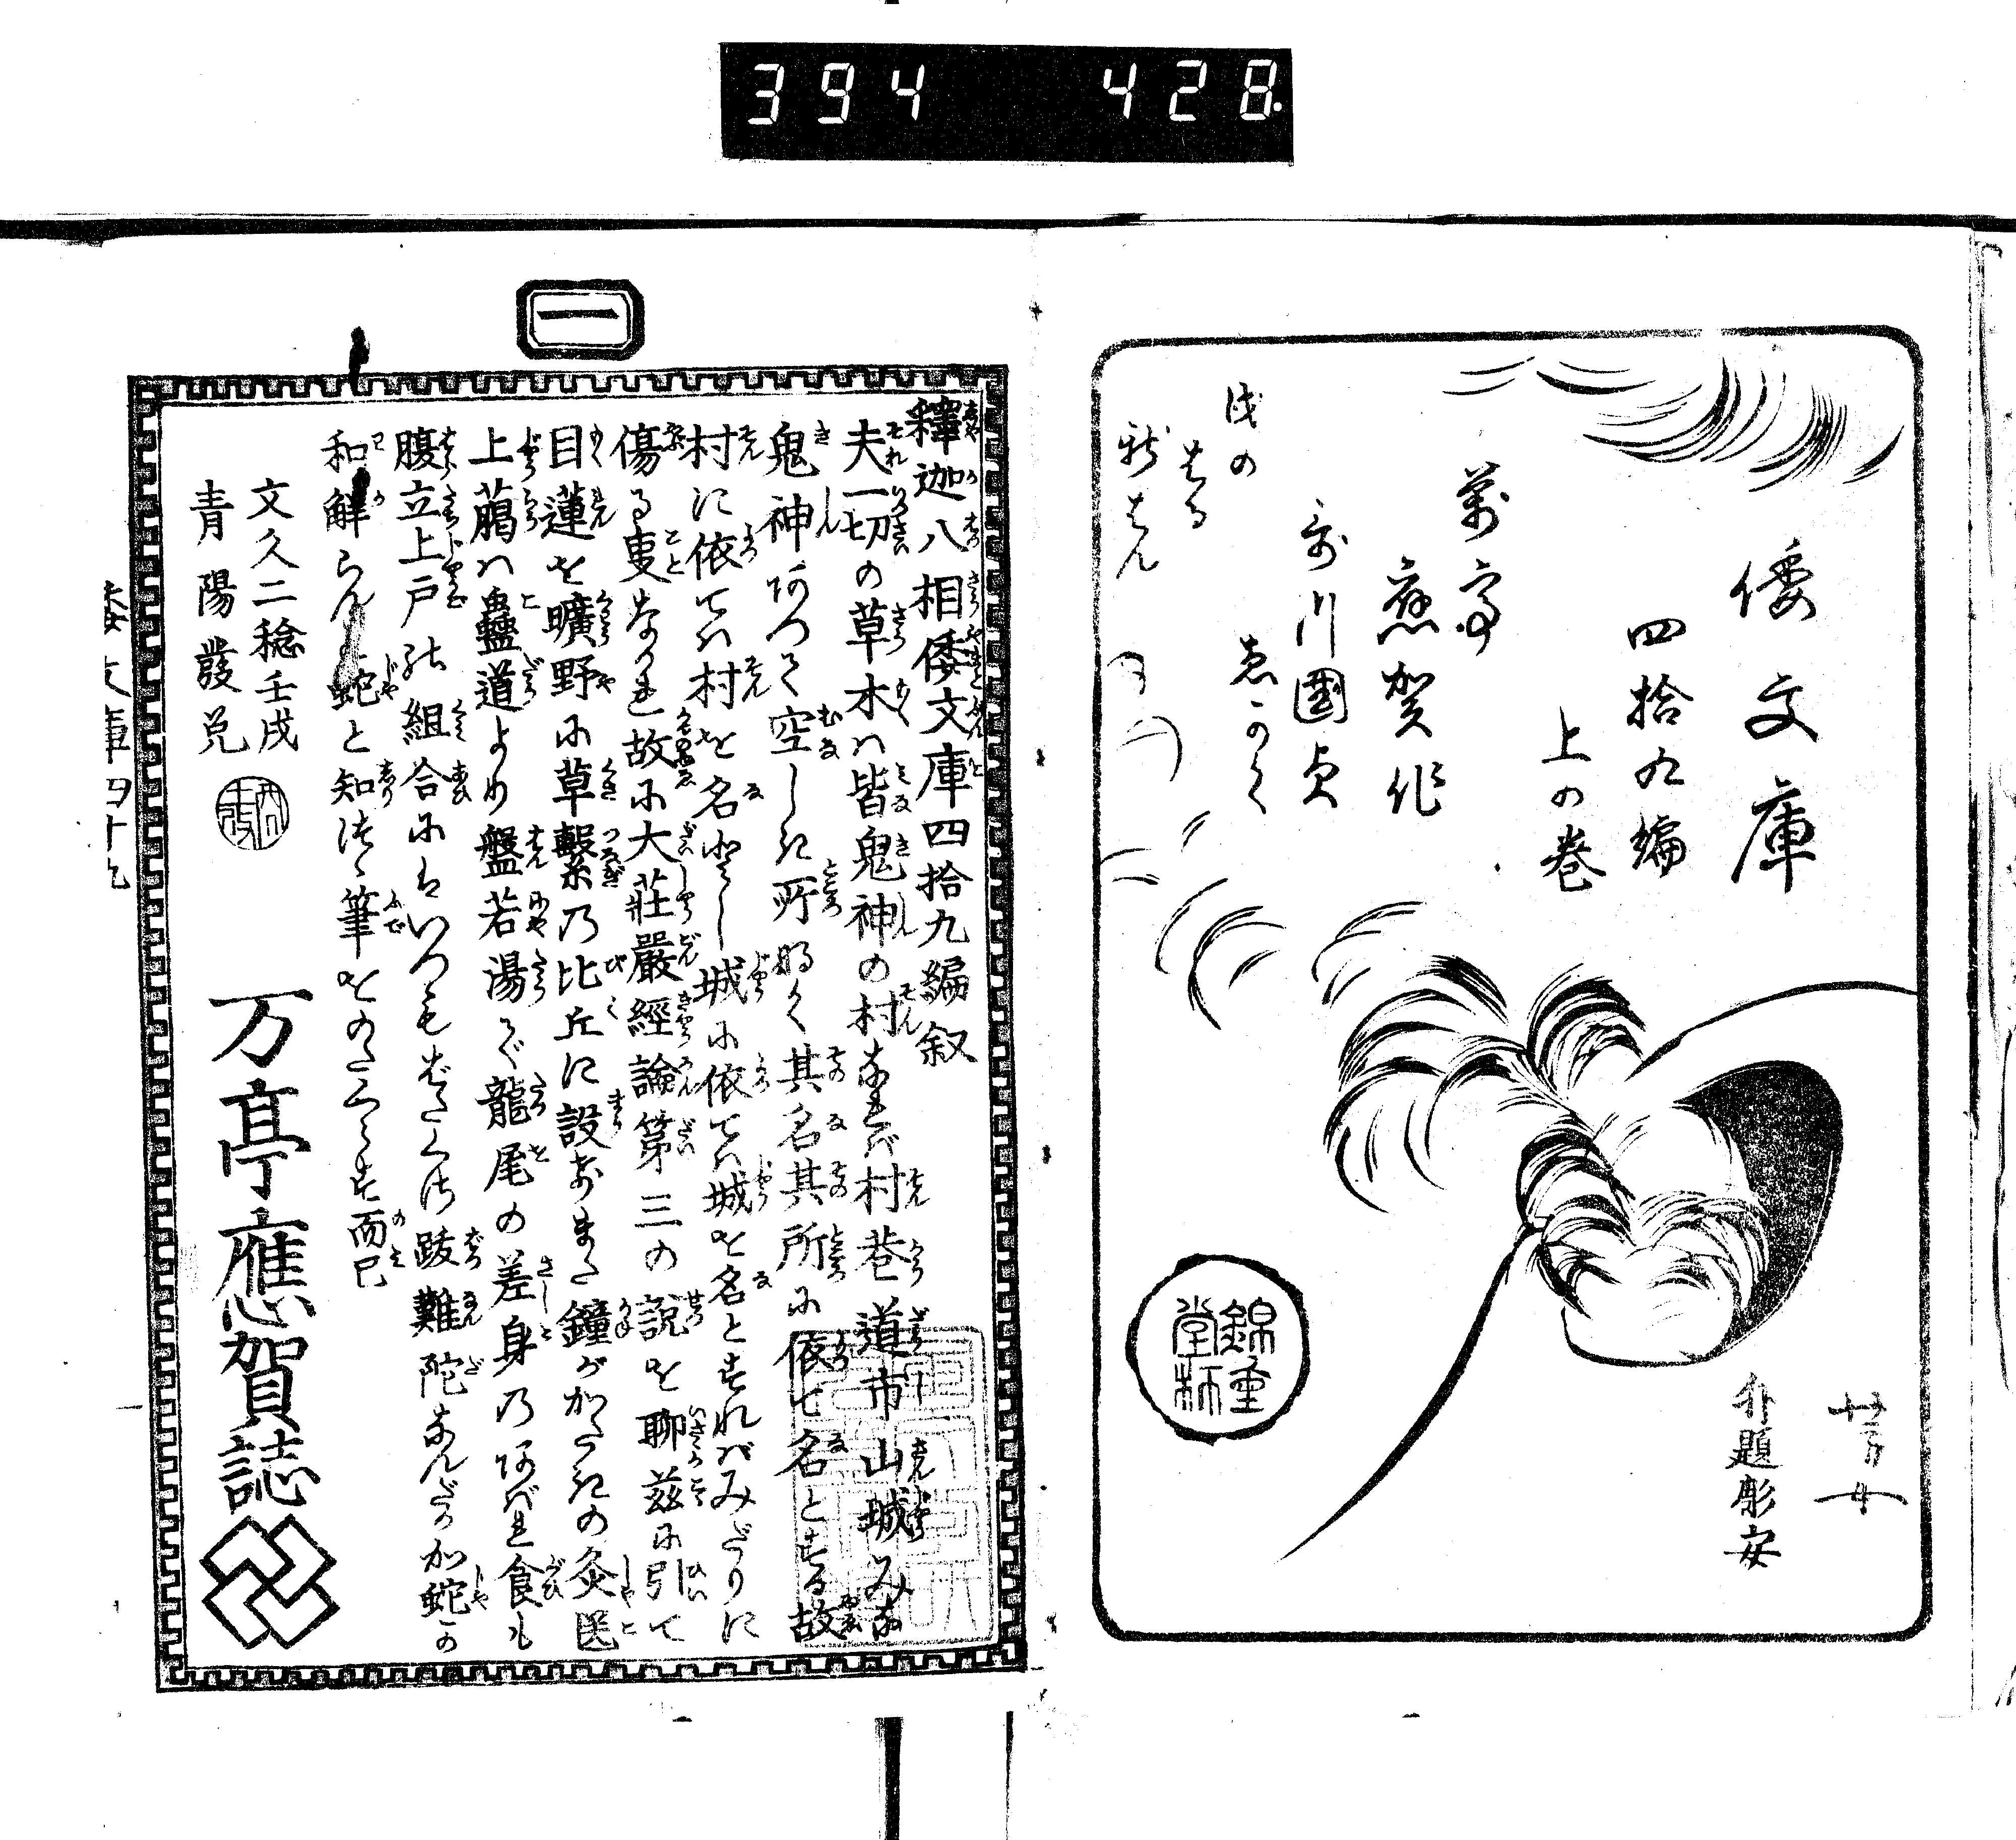 394 428
倭文庫
四拾九編
上の巻
萬亭
應賀作
哥川國貞
ゑかく
戌の
はる
新はん
外題彫安
錦重堂柄
一
釋迦八相倭文庫四拾九編叙
夫一切の草木ハ皆鬼神の村なれバ村巷道市山城みな
鬼神ありて空しき所なく其名其所に依て名とする故
村に依てハ村を名とし城に依てハ城を名とすれバみだりに
傷る事なかれ故に大莊嚴經論第三の説を聊茲に引て
目蓮を曠野に草繋乃比丘に設なまた鐘がかたきの灸医
上﨟ハ蠱道より盤若湯で龍尾の差身乃あばれ食も
腹立上戸の組合にハいつもはたく跋難陀なんだか蛇か
和觧らん蛇と知つゝ筆をのたくらす而已
文久二稔壬戌
青陽發兌
万亭應賀誌
倭文庫四十九